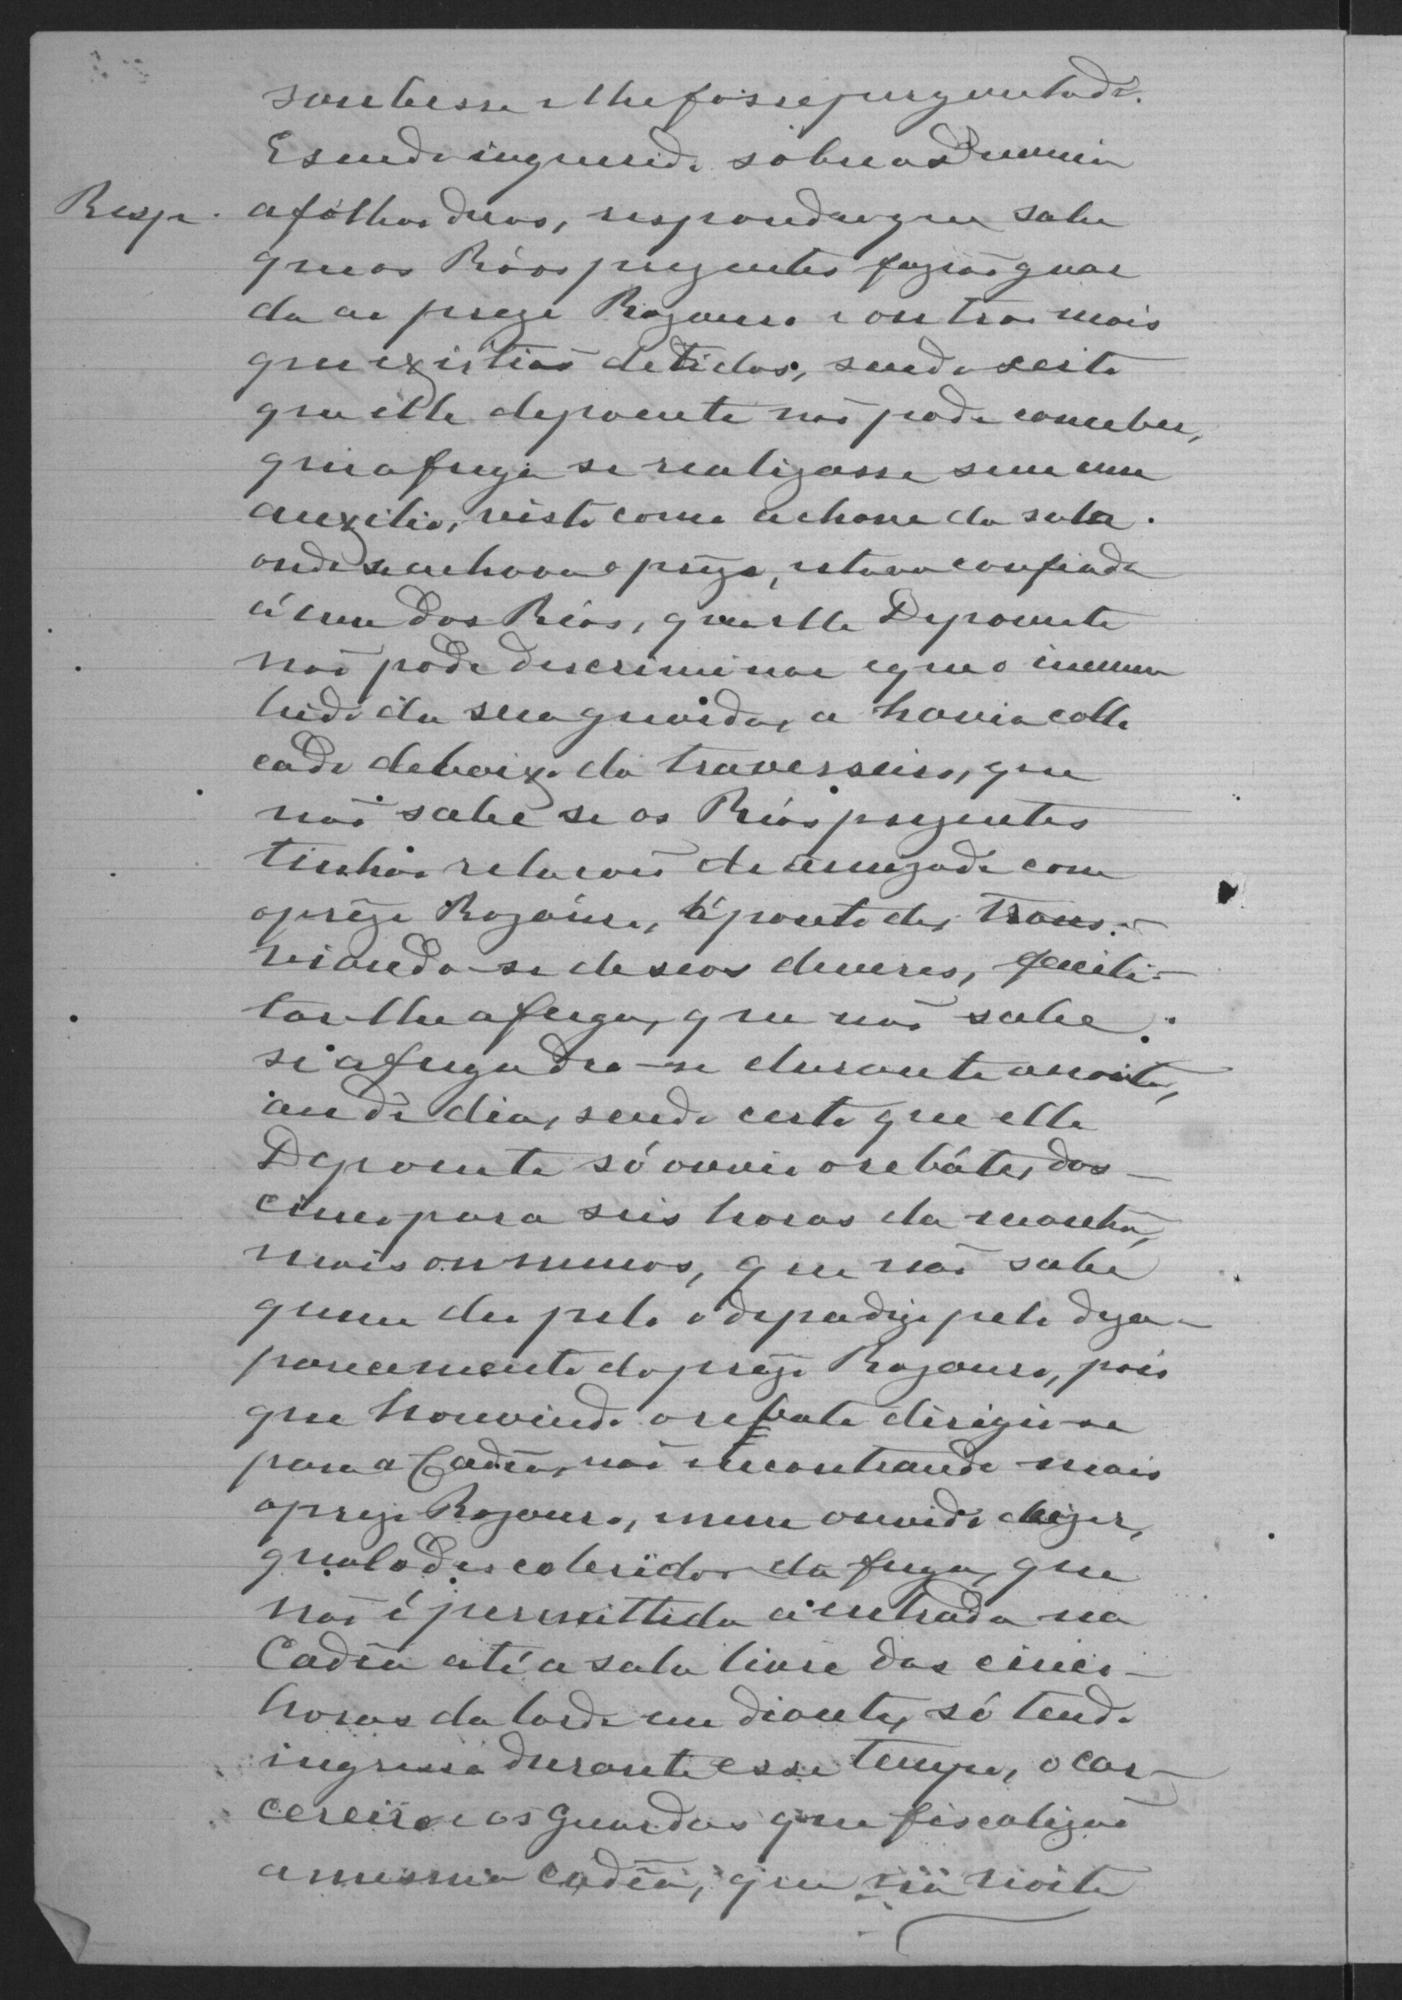 soubesse e lhe fosse perguntado.
E sendo inquerido sobre a Denuncia
Resp. a fôlhas duas, respondeu que sabe
que os Réos prezentes fazião guar
da ao prezo Rozauro e outros mais
que existião detidos, sendo certo
que elle depoente não pode conceber,
que a fuga se realizasse sem um
auxilio, visto como a chave da sala
onde se achava o prezo, estava confiada
á um dos Réos, que elle Depoente
não pode descriminar e que o incum
bido da sua guarda, a havia collo
cado debaixo do travesseiro, que
não sabe se os Réos prezentes
tinhão relacoes de amizade com
o prezo Rozauro, á ponto de, trans-
viando-se de seos deveres, facili-
tar-lhe a fuga, que não sabe
si a fuga deo-se durante a noite,
ou de dia, sendo certo que elle
Depoente só ouvio o rebáte, das
cinco para seis horas da manhã,
mais ou menos, que não sabe
quem deo pelo pelo deza-
parecimento do prezo Rozauro, pois
que houvindo o rebate dirigio-se
para a Cadêa, não encontrando mais
o prezo Rozauro, nem ouvido dizer,
qual o descobridor da fuga, que
não é permittida a entrada na
Cadêa até a sala livre das cinco
horas da tarde em diante, só tendo
ingresso durante esse tempo, o car-
cereiro e os Guardas que fiscalizão
a mesma cadêa, que na noite